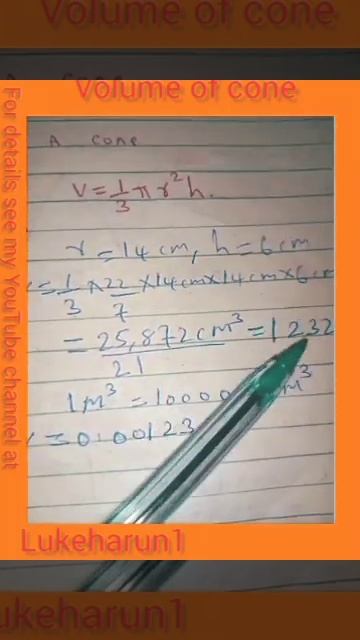 Volume of cone
Volume of cone
For details, see my YouTube channel at
A cone
V = 1/3 π r² h.
r = 14 cm, h = 6 cm
= 1/3 × 22/7 × 14 cm × 14 cm × 6 cm
= 25,872 cm³/21 = 1232
1 m³ = 10000 m³
= 0.00123
Lukeharun1
ukeharun1